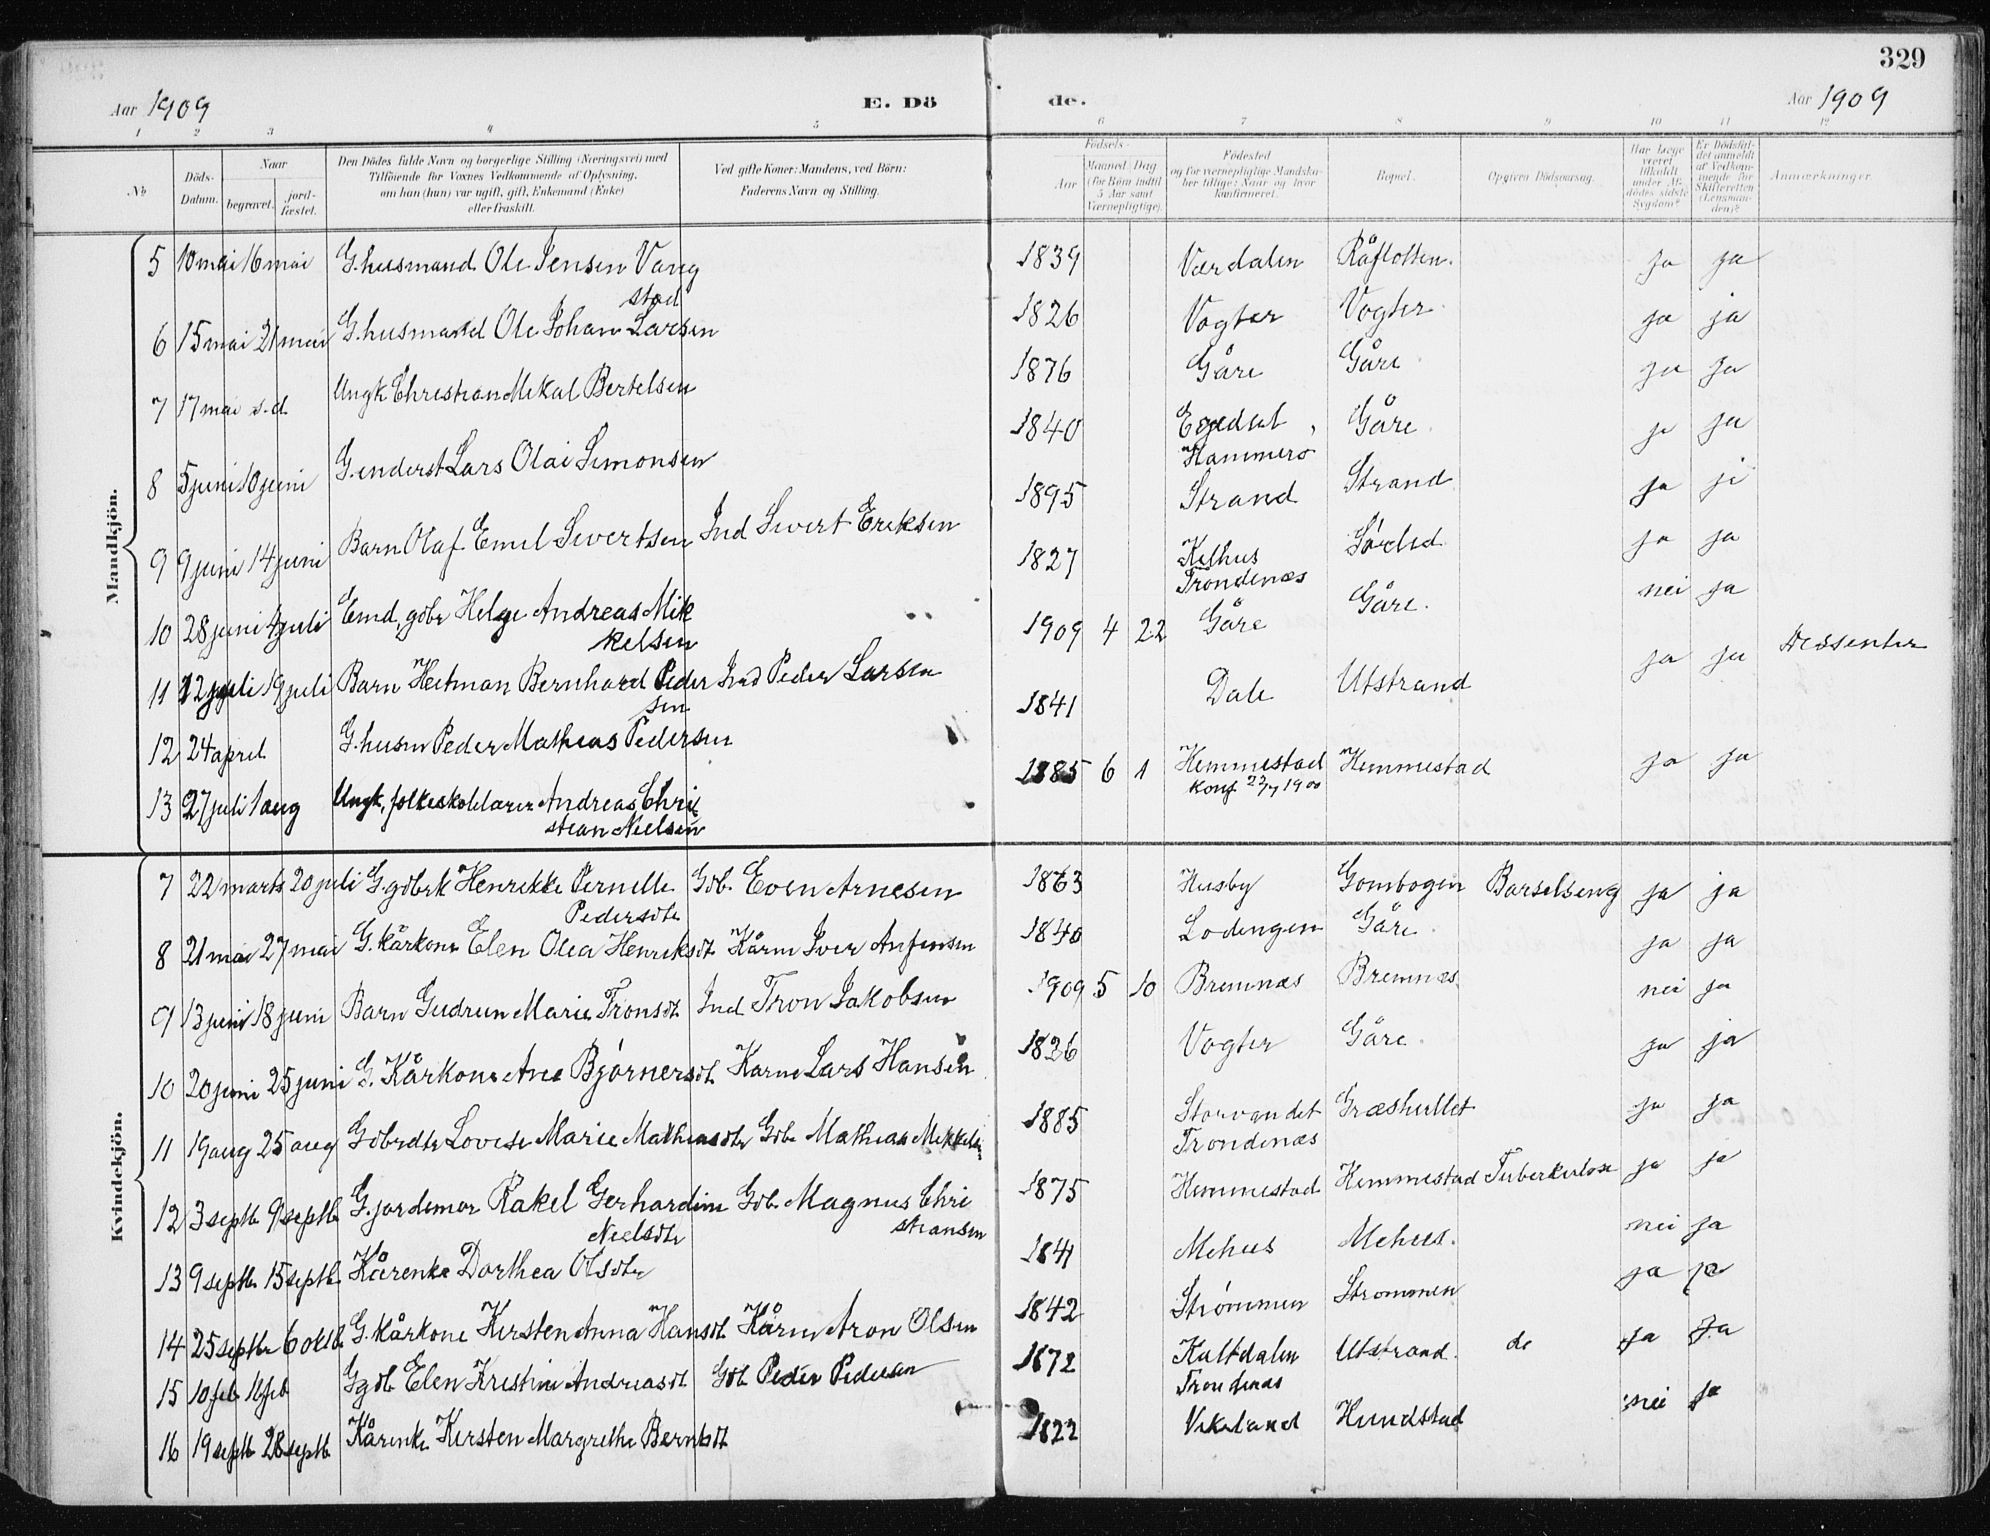 329
Aar 1909 E. Dö de. Aar 1909
1 2 3 4 5 6 7 8 9 10 11 12
№ Döds-Datum. Naar begravet. jord-fæstet. Den Dödes fulde Navn og borgerlige Stilling (Næringsvei) med Tilföiende for Voxnes Vedkommende af Oplysning, om han (hun) var ugift, gift, Enkemand (Enke) eller fraskilt. Ved gifte Koner: Mandens, ved Börn: Faderens Navn og Stilling. Födsels- Aar Maaned Dag (for Börn indtil 5 Aar samt Værnepligtige). Födested og for værnepligtige Mandskaber tillige: Naar og hvor konfirmeret. Bopæl. Opgiven Dödsaarsag. Har Læge været tilkaldt under Afdödes sidste Sygdom? Er Dödsfaldet anmeldt af Vedkommende for Skifteretten (Lensmanden)? Anmærkninger.
Mandkjön.
5 10 mai 16 mai G. husmand Ole Jensen Vang stad 1839 Værdalen Råflotten. ja ja
6 15 mai 21 mai G. husmand Ole Johan Larsen 1826 Vogter Vogter ja ja
7 17 mai s.d. Ungk Christian Mikal Bertelsen 1876 Gåre Gåre ja ja
8 5 juni 10 juni G. inderst Lars Olai Simonsen 1840 Hammerø Gåre ja ja
9 9 juni 14 juni Barn Olaf Emil Sivertsen Ind Sivert Eriksen 1895 Strand Strand ja ja
10 28 juni 4 juli Emd, gbr Helge Andreas Mikkelsen 1827 Kilhus Trondenæs Sørlid ja ja
11 12 juli 19 juli Barn Heitman Bernhard Pedersen Ind Peder Larsen 1909 4 22 Gåre Gåre. nei ja
12 24 april G. husm Peder Mathias Pedersen 1841 Dale Utstrand ja ja Dissenter
13 27 juli 1 aug Ungk, folkeskolelærer Andreas Christian Nielsen 1885 6 1 Hemmestad konf 22/7 1900 Hemmestad ja ja
Kvindekjön.
7 22 marts 20 juli G. gbrk Henrikke Pernille Pedersdtr Gbr. Even Arnesen 1863 Husby Gombogen Barselseng ja ja
8 21 mai 27 mai G. kårkone Elen Olea Henriksdt Kårm Iver Anfinsen 1840 Lodingen Gåre ja ja
9 13 juni 18 juni Barn Gudrun Marie Tronsdt Ind Tron Jakobsen 1909 5 10 Bremnæs Bremnæs nei ja
10 20 juni 25 juni G. Kårkone Ane Bjørnersdt. Karm Lars Hansen 1826 Vogter Gåre ja ja
11 19 aug 25 aug Gbrdtr Lovise Marie Mathiasdtr Gbr Mathias Mikkelsen 1885 Storvandet Trondenæs Græshullet ja ja
12 3 septb. 9 septb G. jordmor Rakel Gerhardine Nielsdtr Gbr. Magnus Christiansen 1875 Hemmestad Hemmestad Tuberkulose ja ja
13 9 septb. 15 septb. Kårenke Dorthea Olsdtr 1841 Mehus Mehus. nei ja
14 25 septbr 6 oktb. G. kårkone Kirsten Anna Hansdt Kårm Aron Olsen 1842 Strømmen Strommen ja ja
15 10 feb 16 feb Ggbr. Elen Kristine Andreasdt Gbr. Peder Pedersen 1872 Kaltdalen Trondenæs Utstrand. do ja ja
16 19 septb 28 septb Kårenke Kirsten Margrethe Berntsdt 1822 Vikeland Hundstad nei ja